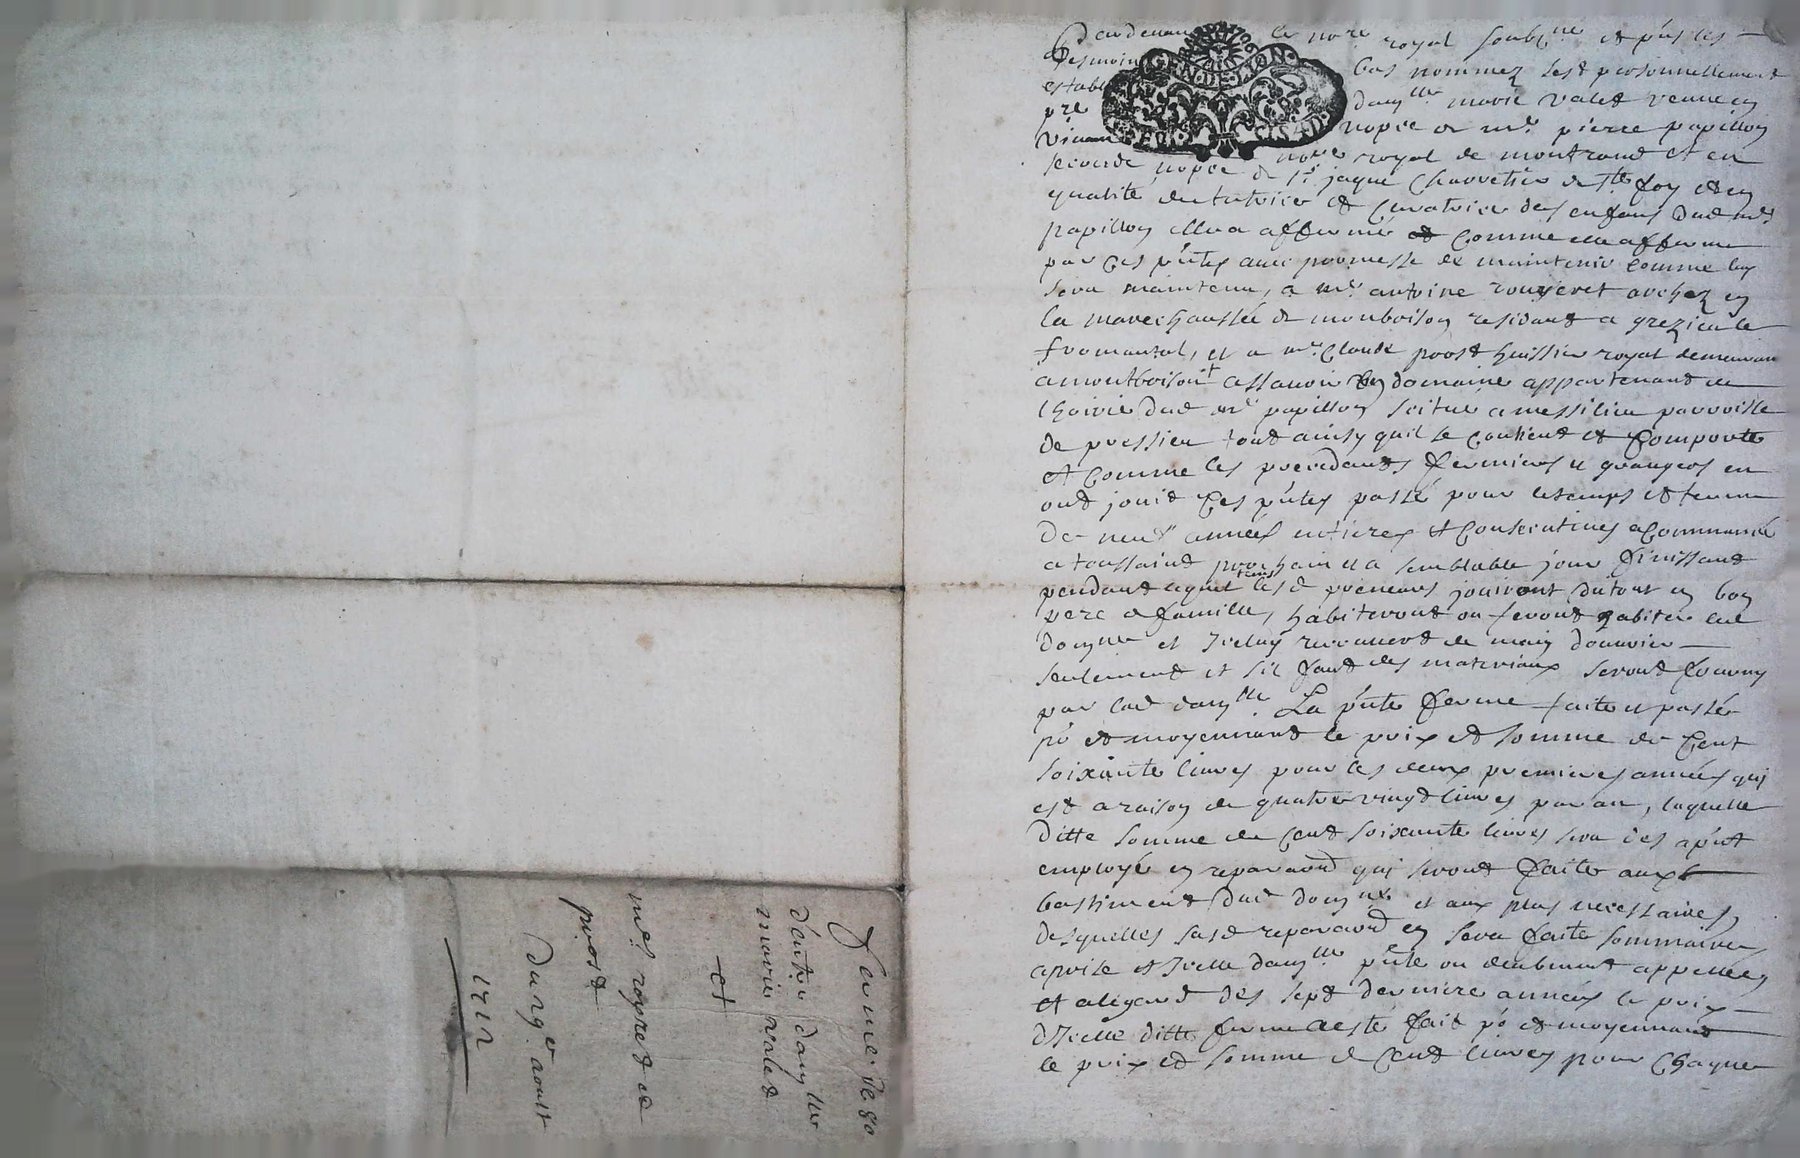 Pardevant le nore royal soubzne et pns les
tesmoins bas nommez sest personnellement
establ damlle marie valet veuve en
pre nopce de mr pierre papillon
vivant nore royal de montrond et en
seconde nopce de sr jaque Charretier de Ste foy et en
qualité de tutrice et Curatrice des enfans dud mr
papillon elle a affermé et Comme elle afferme
par Ces pntes avec promesse de maintenir comme
sera maintenu, a mr antoine rouveret archez en
la marechaussée de monbrison residant a grezieu le
fromantal, et a mr Claude prost huissier royal demeurant
a montbrison assavoir un domaine appartenant a
lhoirie dud mr papillon scitué a messilieu parroisse
de pressieu tout ainsy quil se Contient et Comporte
et Comme les precedants fermiers et grangers en
ont jouit Ces pntes passé pour le temps et terme
de neuf années entieres et Consecutives a Commencé
a toussaint prochain et a semblable jour finissant
pendant lequel temps lesd preneurs jouiront du tout en bon
pere de famille, habiteront ou feront habiter led
domne et Iceluy de main douvrier
seulement et sil faut des materiaux seront fourny
par lad damlle. La pnte ferme faite et passée
po et moyennant le prix et somme de Cent
soixante livres pour les deux premieres années qui
est a raison de quatre vingt livres par an, laquelle
ditte somme de Cent soixante livres sera des apnt
employé en reparaond qui seront faite aux
bastiment dud domne et aux plus necessaires,
desquelles sasd reparaond en sera faite sommaire
aprise et Icelle damlle pnte ou deubment appellée,
et a legard des sept derniere années le prix
dIcelle ditte ferme a esté fait po et moyennant
le prix et somme de Cent livres pour Chaque
ferme de 80
dentre damlle
marie valet
et
mes royret et
prost
du 19e aoust
1712